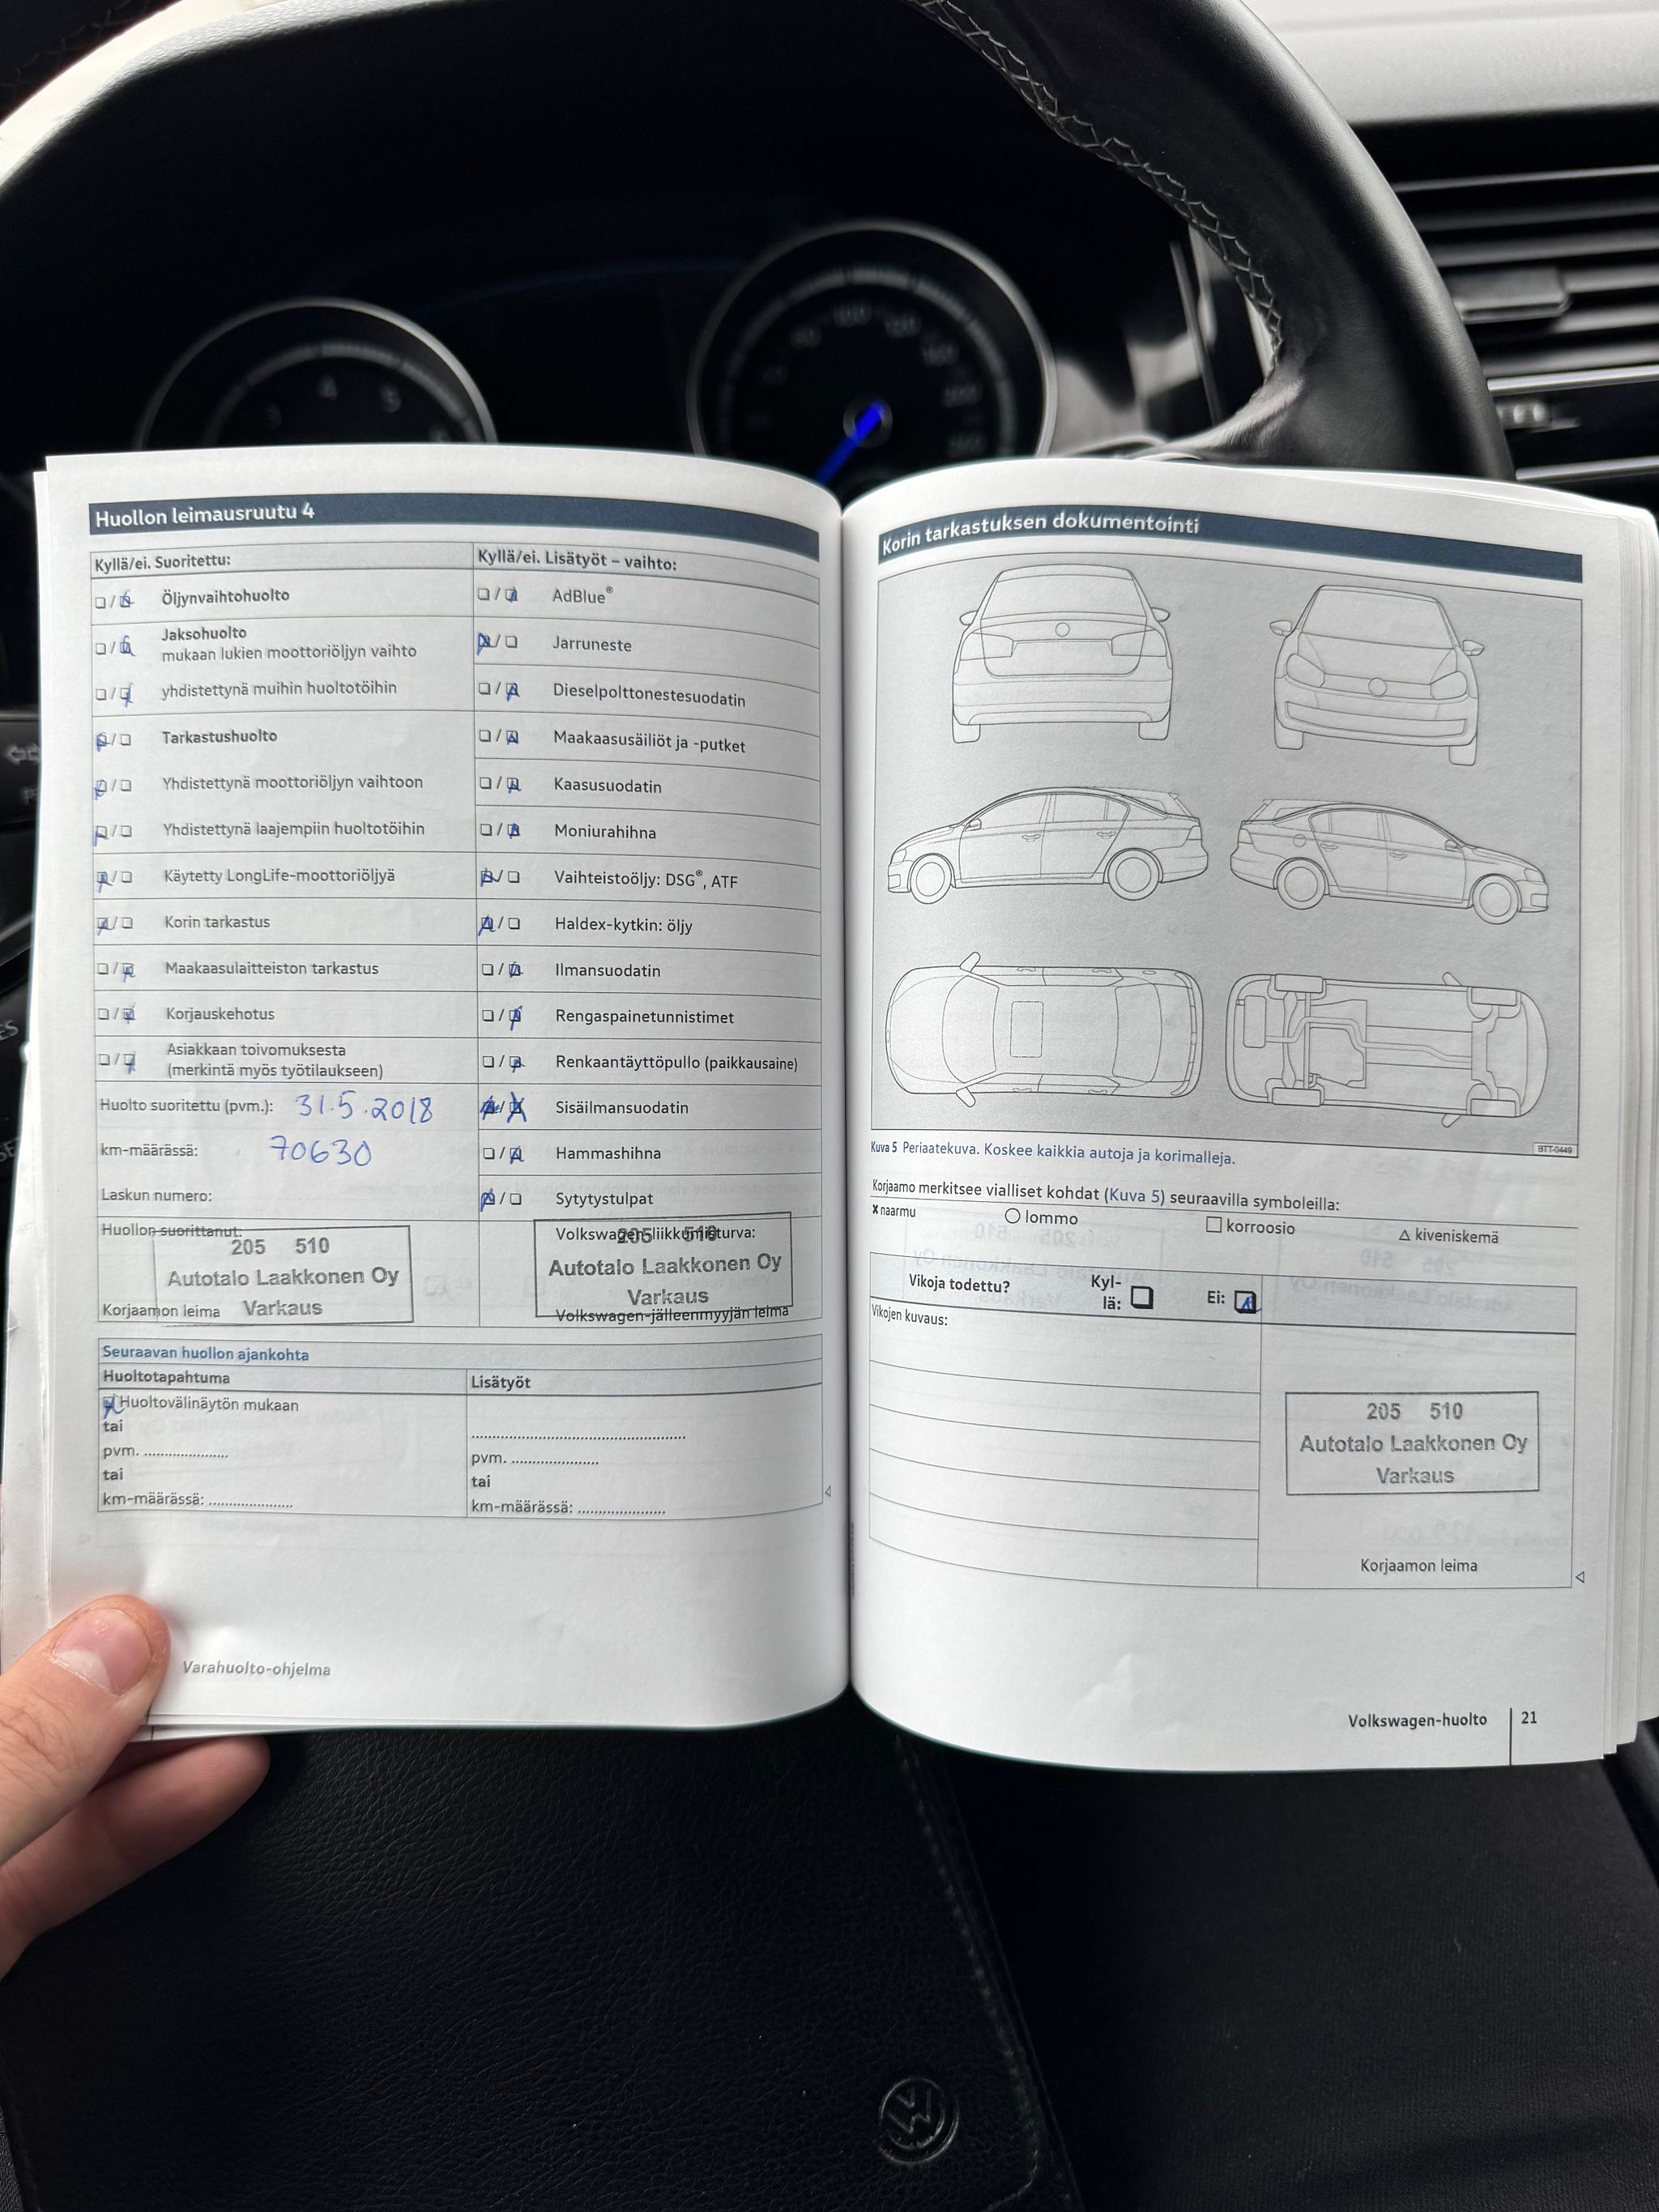 Huollon leimausruutu 4
Kyllä/ei. Suoritettu:
Öljynvaihtohuolto
Jaksohuolto
mukaan lukien moottoriöljyn vaihto
yhdistettynä muihin huoltotöihin
Tarkastushuolto
Yhdistettynä moottoriöljyn vaihtoon
Yhdistettynä laajempiin huoltotöihin
Käytetty LongLife-moottoriöljyä
Korin tarkastus
Maakaasulaitteiston tarkastus
Korjauskehotus
Asiakkaan toivomuksesta
(merkintä myös työtilaukseen)
Huolto suoritettu (pvm.): 31.5.2018
km-määrässä: 70630
Laskun numero:
Huollon suorittanut:
205 510
Autotalo Laakkonen Oy
Varkaus
Korjaamon leima
Kyllä/ei. Lisätyöt – vaihto:
AdBlue®
Jarruneste
Dieselpolttonestesuodatin
Maakaasusäiliöt ja -putket
Kaasusuodatin
Moniurahihna
Vaihteistoöljy: DSG®, ATF
Haldex-kytkin: öljy
Ilmansuodatin
Rengaspainetunnistimet
Renkaantäyttöpullo (paikkausaine)
Sisäilmansuodatin
Hammashihna
Sytytystulpat
Volkswagen-liikkumisturva:
205 510
Autotalo Laakkonen Oy
Varkaus
Volkswagen-jälleenmyyjän leima
Seuraavan huollon ajankohta
Huoltotapahtuma
Huoltovälinäytön mukaan
tai
pvm. ....................
tai
km-määrässä: ....................
Lisätyöt
..................................................
pvm. ....................
tai
km-määrässä: ....................
Varahuolto-ohjelma
Korin tarkastuksen dokumentointi
BTT-0449
Kuva 5 Periaatekuva. Koskee kaikkia autoja ja korimalleja.
Korjaamo merkitsee vialliset kohdat (Kuva 5) seuraavilla symboleilla:
x naarmu
lommo
korroosio
kiveniskemä
Vikoja todettu?
Kyl-
lä:
Ei:
Vikojen kuvaus:
205 510
Autotalo Laakkonen Oy
Varkaus
Korjaamon leima
Volkswagen-huolto 21